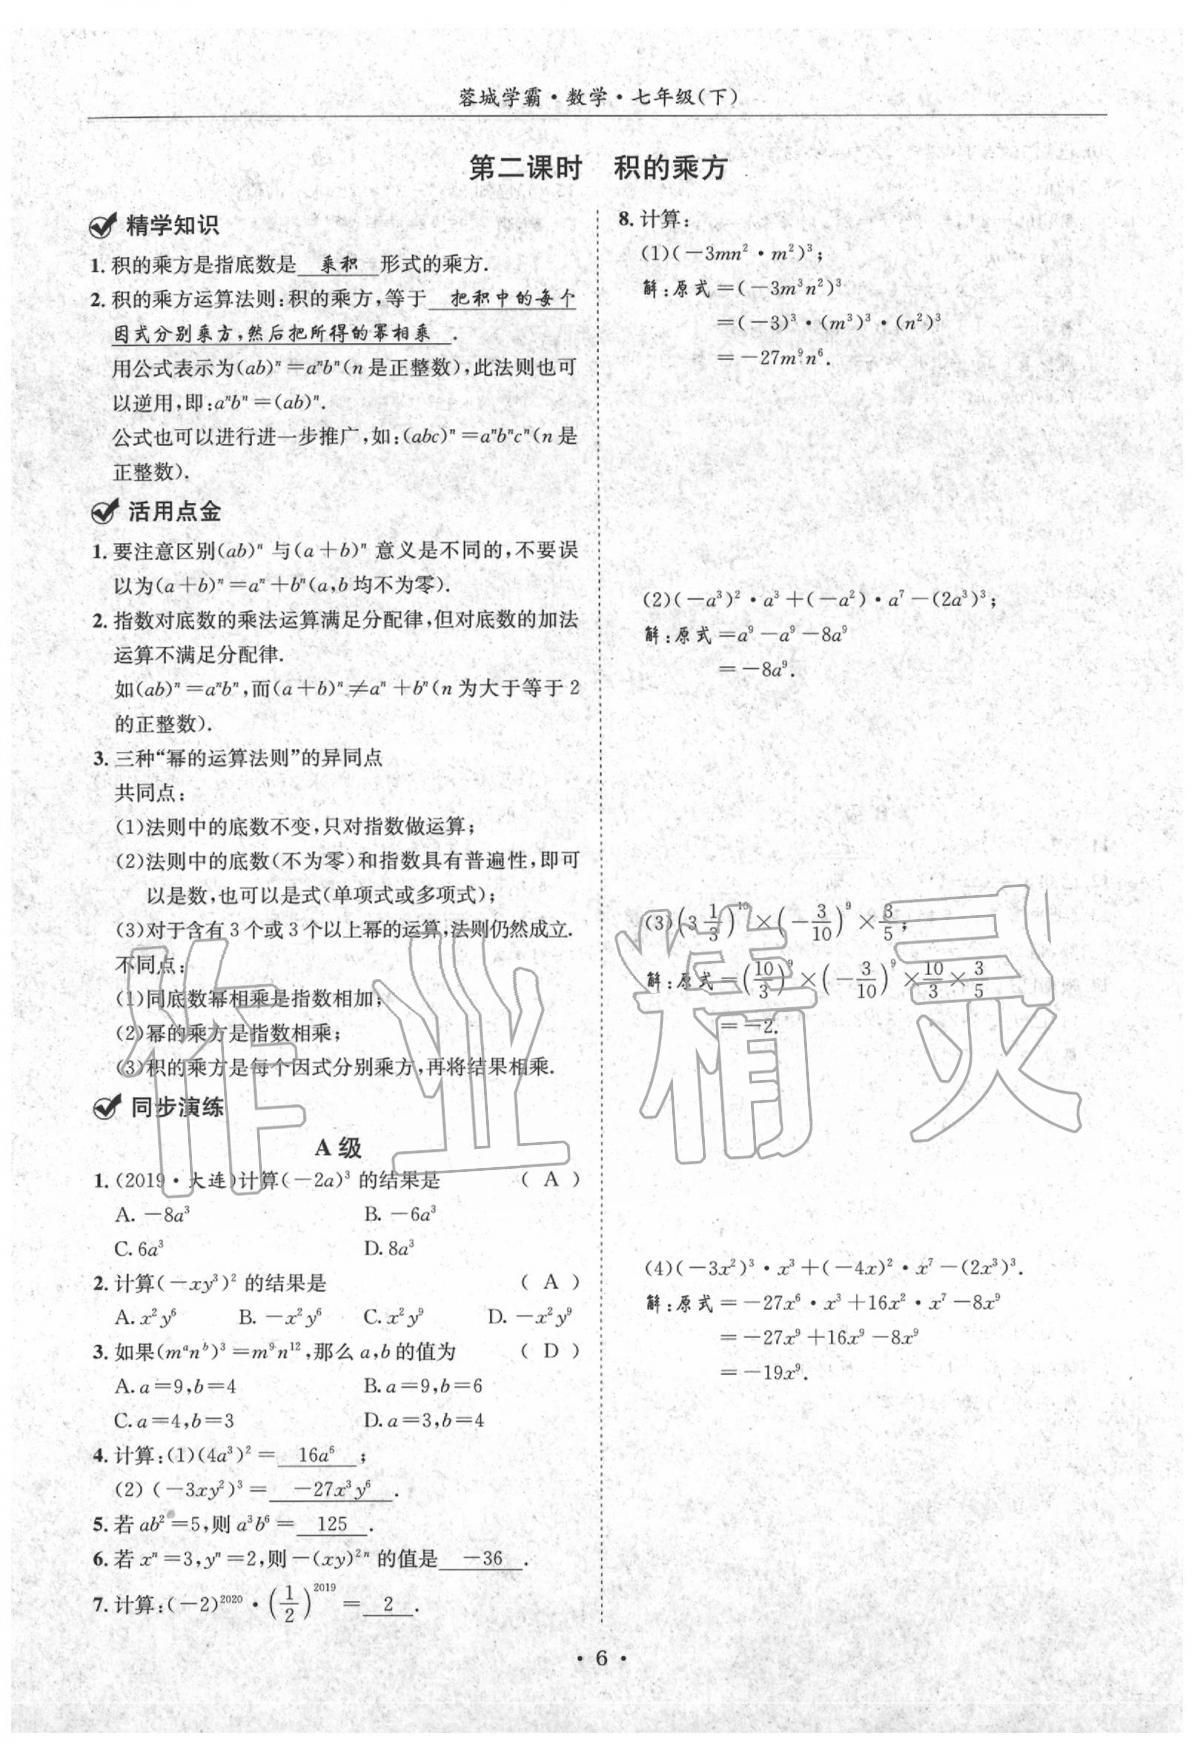 蓉城学霸·数学·七年级(下)
第二课时 积的乘方
精学知识
1. 积的乘方是指底数是 乘积 形式的乘方.
2. 积的乘方运算法则:积的乘方,等于 把积中的每个
因式分别乘方,然后把所得的幂相乘 .
用公式表示为(ab)ⁿ=aⁿbⁿ(n是正整数),此法则也可
以逆用,即:aⁿbⁿ=(ab)ⁿ.
公式也可以进行进一步推广,如:(abc)ⁿ=aⁿbⁿcⁿ(n是
正整数).
活用点金
1. 要注意区别(ab)ⁿ与(a+b)ⁿ意义是不同的,不要误
以为(a+b)ⁿ=aⁿ+bⁿ(a,b均不为零).
2. 指数对底数的乘法运算满足分配律,但对底数的加法
运算不满足分配律.
如(ab)ⁿ=aⁿbⁿ,而(a+b)ⁿ≠aⁿ+bⁿ(n为大于等于2
的正整数).
3. 三种“幂的运算法则”的异同点
共同点:
(1)法则中的底数不变,只对指数做运算;
(2)法则中的底数(不为零)和指数具有普遍性,即可
以是数,也可以是式(单项式或多项式);
(3)对于含有3个或3个以上幂的运算,法则仍然成立.
不同点:
(1)同底数幂相乘是指数相加;
(2)幂的乘方是指数相乘;
(3)积的乘方是每个因式分别乘方,再将结果相乘.
同步演练
A级
1. (2019·大连)计算(-2a)³的结果是 ( A )
A. -8a³ B. -6a³
C. 6a³ D. 8a³
2. 计算(-xy³)²的结果是 ( A )
A. x²y⁶ B. -x²y⁶ C. x²y⁹ D. -x²y⁹
3. 如果(mᵃnᵇ)³=m⁹n¹²,那么a,b的值为 ( D )
A. a=9,b=4 B. a=9,b=6
C. a=4,b=3 D. a=3,b=4
4. 计算:(1)(4a³)²= 16a⁶ ;
(2)(-3xy²)³= -27x³y⁶ .
5. 若ab²=5,则a³b⁶= 125 .
6. 若xⁿ=3,yⁿ=2,则-(xy)²ⁿ的值是 -36 .
7. 计算:(-2)²⁰²⁰·(1/2)²⁰¹⁹= 2 .
8. 计算:
(1)(-3mn²·m²)³;
解:原式=(-3m³n²)³
=(-3)³·(m³)³·(n²)³
=-27m⁹n⁶.
(2)(-a³)²·a³+(-a²)·a⁷-(2a³)³;
解:原式=a⁹-a⁹-8a⁹
=-8a⁹.
(3)(3 1/3)¹⁰×(-3/10)⁹×3/5;
解:原式=(10/3)⁹×(-3/10)⁹×10/3×3/5
=-2.
(4)(-3x²)³·x³+(-4x)²·x⁷-(2x³)³.
解:原式=-27x⁶·x³+16x²·x⁷-8x⁹
=-27x⁹+16x⁹-8x⁹
=-19x⁹.
·6·
作业精灵